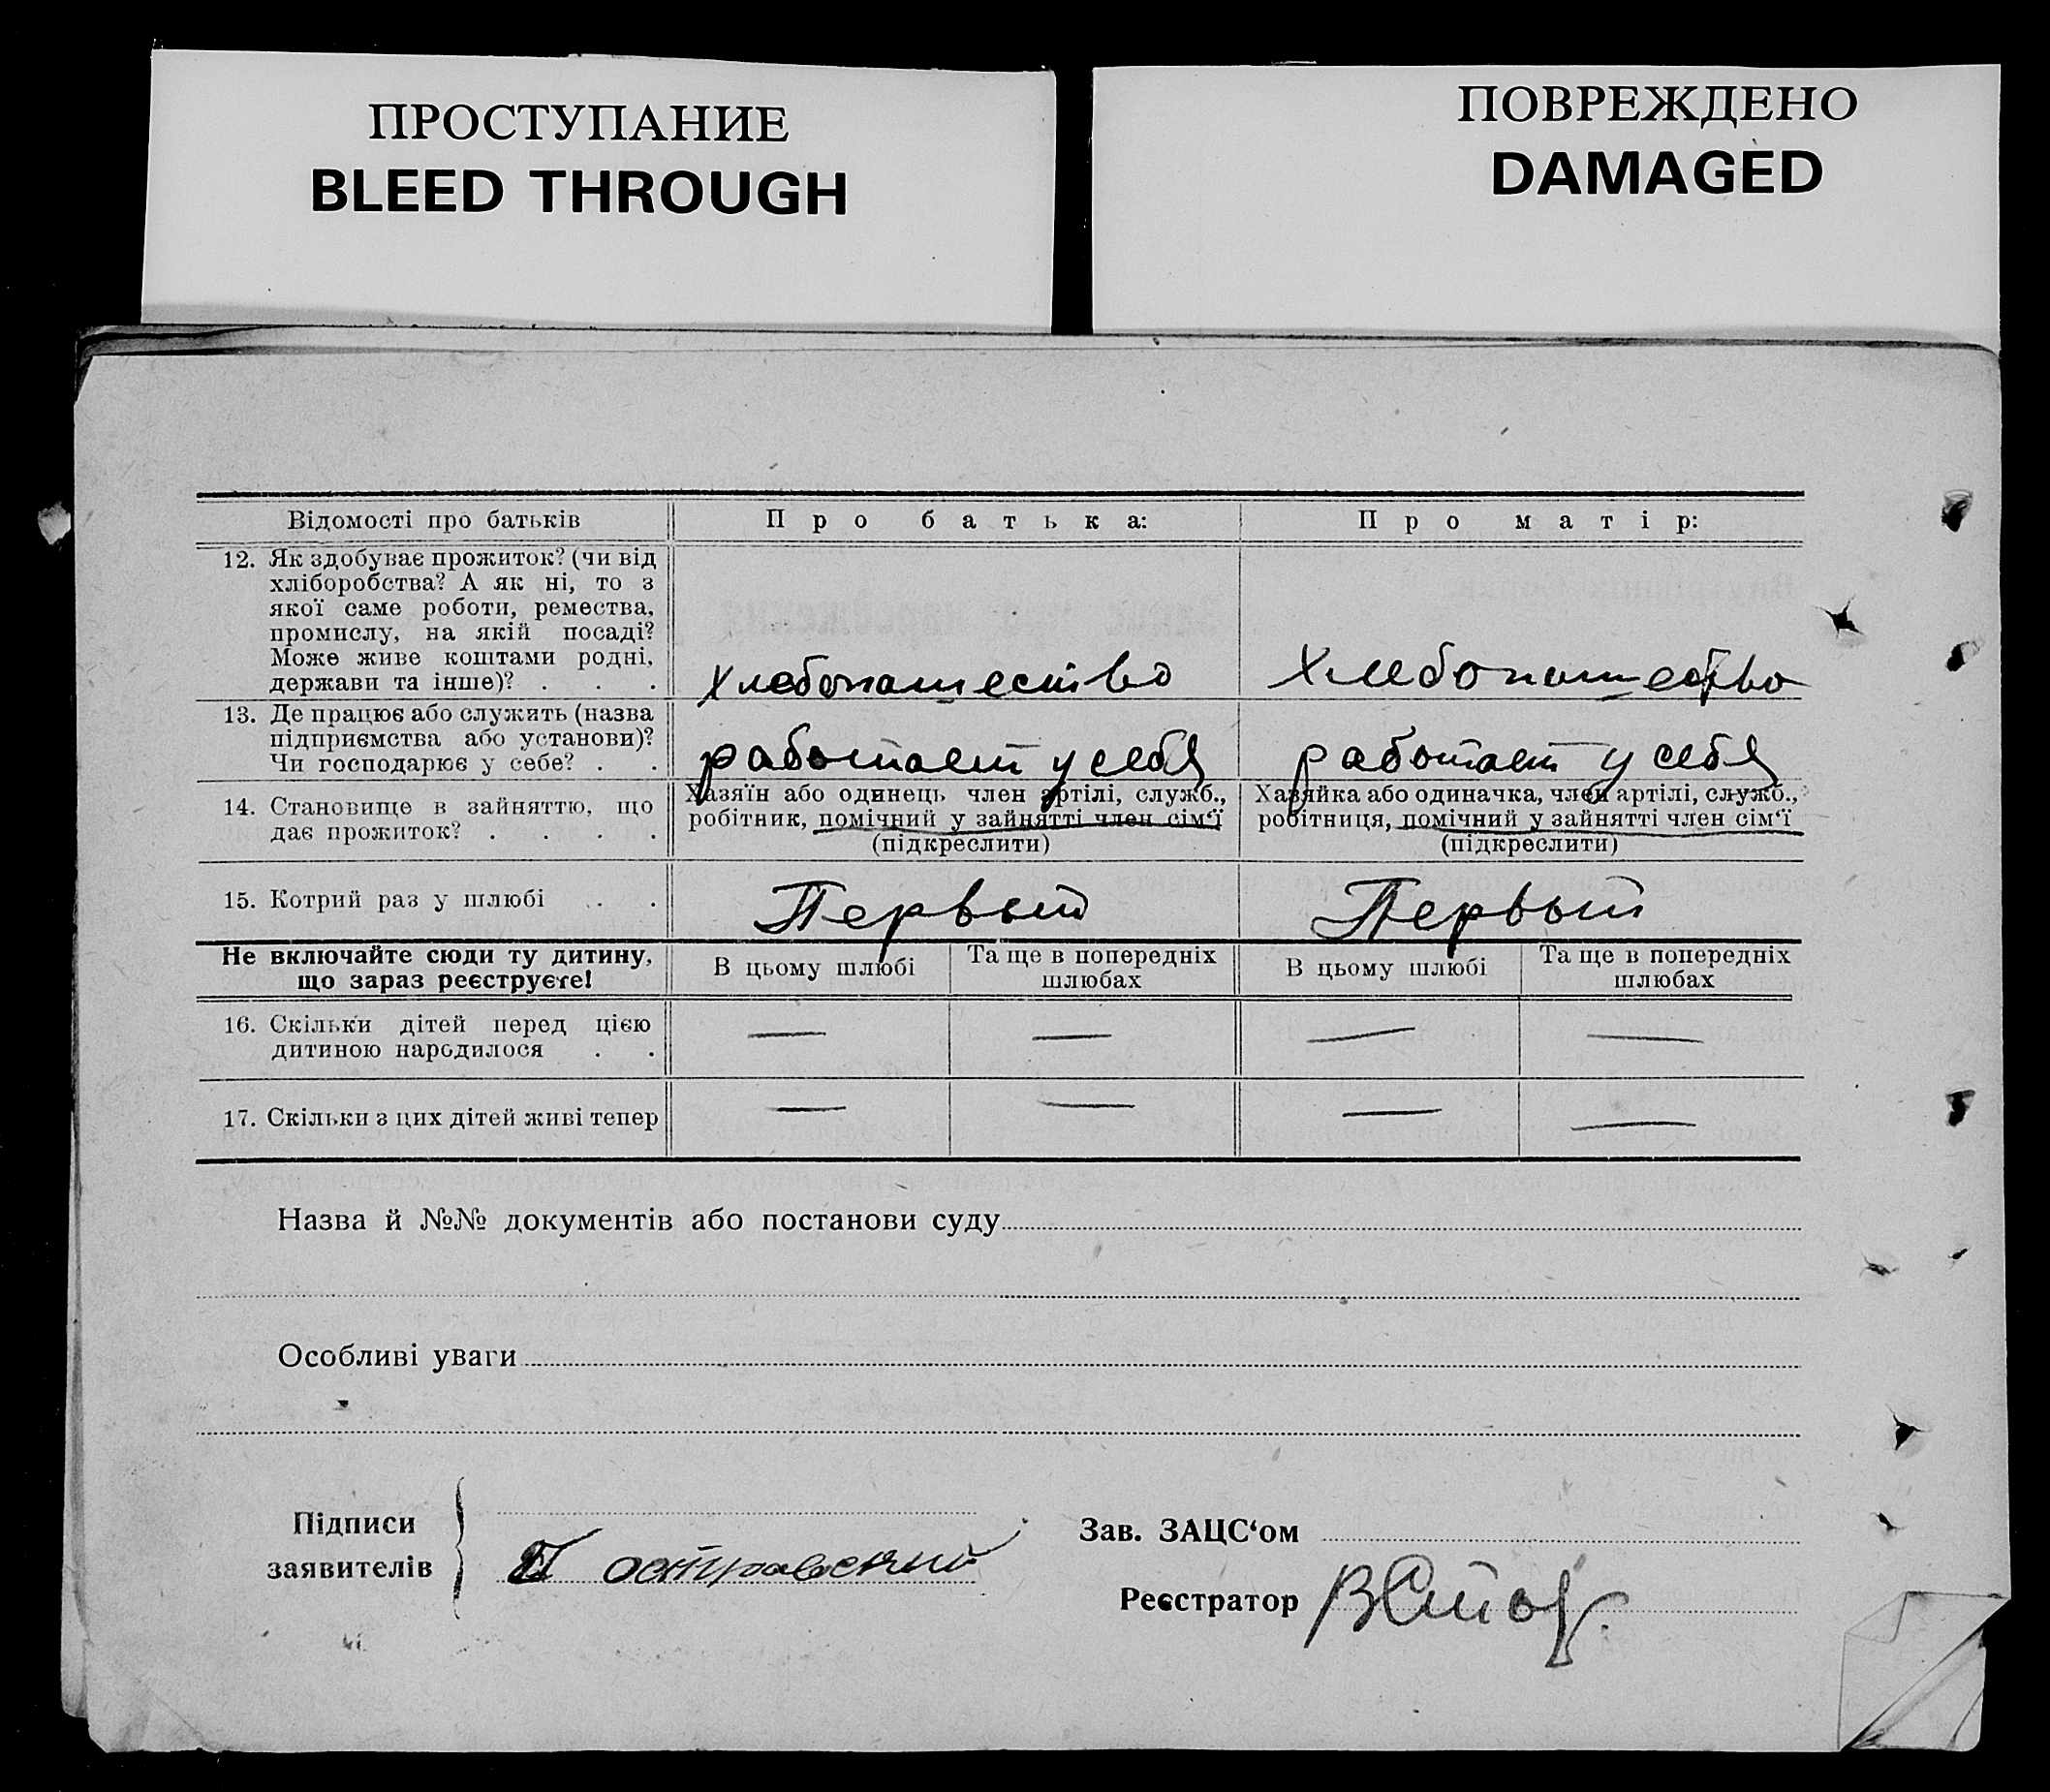 ПРОСТУПАНИЕ
BLEED THROUGH
ПОВРЕЖДЕНО
DAMAGED
Відомості про батьків
Про батька:
Про матір:
12. Як здобуває прожиток? (чи від
хліборобства? А як ні, то з
якої саме роботи, ремества,
промислу, на якій посаді?
Може живе коштами родні,
держави та інше)? . . .
хлебопашество
хлебопашество
13. Де працює або служить (назва
підприємства або установи)?
Чи господарює у себе? . .
работает у себя
работает у себя
14. Становище в зайняттю, що
дає прожиток? . . . .
Хазяїн або одинець член артілі, служб.,
робітник, помічний у зайнятті член сім'ї
(підкреслити)
Хазяйка або одиначка, член артілі, служб.,
робітниця, помічний у зайнятті член сім'ї
(підкреслити)
15. Котрий раз у шлюбі . .
Первый
Первый
Не включайте сюди ту дитину,
що зараз реєструєте!
В цьому шлюбі
Та ще в попередніх
шлюбах
В цьому шлюбі
Та ще в попередніх
шлюбах
16. Скільки дітей перед цією
дитиною народилося . .
— — — —
17. Скільки з цих дітей живі тепер
— — — —
Назва й №№ документів або постанови суду
Особливі уваги
Підписи
заявителів
островский
Зав. ЗАЦС'ом
Реєстратор